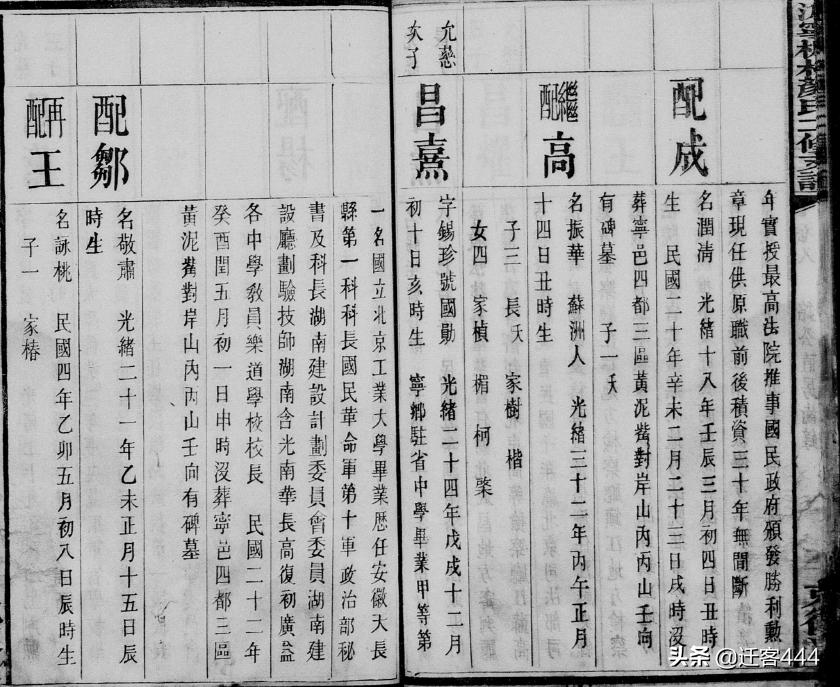 顏氏二修支譜
年實授最高法院推事國民政府頒發勝利勳
章現任供原職前後積資三十年無間斷
配成
名潤清 光緒十八年壬辰三月初四日丑時
生 民國二十年辛未二月二十三日戌時沒
葬寧邑四都三區黃泥觜對岸山內丙山壬向
有碑墓 子一 夭
繼配高
名振華 蘇洲人 光緒三十二年丙午正月
十四日丑時生
子三 長夭 家樹 楷
女四 家楨 楣 柯 棨
允慈
次子
昌熹
字錫珍號國勛 光緒二十四年戊戌十二月
初十日亥時生 寧鄉駐省中學畢業甲等第
一名國立北京工業大學畢業歷任安徽天長
縣第一科科長國民革命軍第十軍政治部秘
書及科長湖南建設計劃委員會委員湖南建
設廳劃驗技師湖南含光南華長高復初廣益
各中學教員樂道學校校長 民國二十二年
癸酉閏五月初一日申時沒葬寧邑四都三區
黃泥觜對岸山內丙山壬向有碑墓
配鄒
名敬肅 光緒二十一年乙未正月十五日辰
時生
再配王
名詠桃 民國四年乙卯五月初八日辰時生
子一 家椿
头条 @迁客444